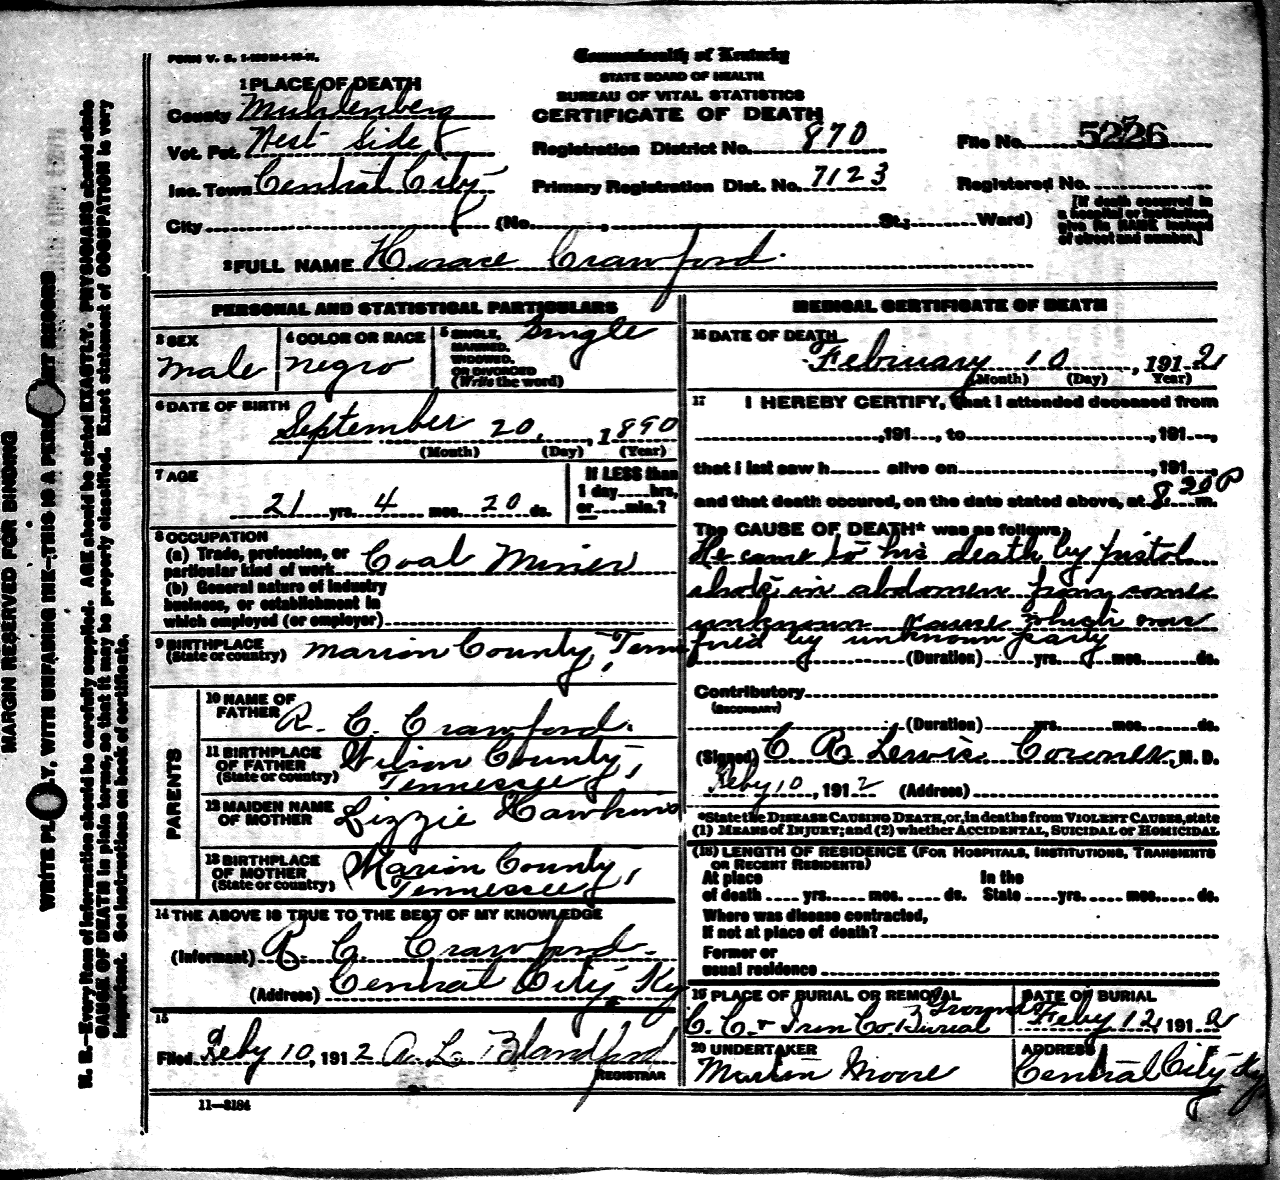 FORM V. S.
Commonwealth of Kentucky
STATE BOARD OF HEALTH
BUREAU OF VITAL STATISTICS
CERTIFICATE OF DEATH
1 PLACE OF DEATH
County Muhlenberg
Vot. Pct. West Side
Inc. Town Central City
City (No. , St; Ward)
Registration District No. 870
Primary Registration Dist. No. 7123
File No. 5226
Registered No.
[If death occurred in
a hospital or institution,
give its NAME instead
of street and number.]
2 FULL NAME Horace Crawford
PERSONAL AND STATISTICAL PARTICULARS
3 SEX
male
4 COLOR OR RACE
negro
5 SINGLE,
MARRIED,
WIDOWED,
OR DIVORCED
(Write the word)
Single
6 DATE OF BIRTH
September 20, 1890
(Month) (Day) (Year)
7 AGE
21 yrs. 4 mos. 20 ds.
If LESS than
1 day hrs,
or min.?
8 OCCUPATION
(a) Trade, profession, or
particular kind of work Coal Miner
(b) General nature of industry
business, or establishment in
which employed (or employer)
9 BIRTHPLACE
(State or country) Marion County, Tenn
PARENTS
10 NAME OF
FATHER R. C. Crawford.
11 BIRTHPLACE
OF FATHER
(State or country) Wilson County,
Tennessee
12 MAIDEN NAME
OF MOTHER Lizzie Hawkins
13 BIRTHPLACE
OF MOTHER
(State or country) Marion County,
Tennessee
14 THE ABOVE IS TRUE TO THE BEST OF MY KNOWLEDGE
(Informant) R. C. Crawford
(Address) Central City, Ky
15
Filed Feby 10, 1912 A. L. Blandford
REGISTRAR
11—3184
MEDICAL CERTIFICATE OF DEATH
16 DATE OF DEATH
February 10, 1912
(Month) (Day) Year)
17 I HEREBY CERTIFY, that I attended deceased from
,191 , to ,191 ,
that I last saw h alive on ,191 ,
and that death occured, on the date stated above, at 8 20 P m.
The CAUSE OF DEATH* was as follows:
He came to his death by pistol
shots in abdomen from some
unknown cause which was
fired by unknown party
(Duration) yrs. mos. ds.
Contributory
(SECONDARY)
(Duration) yrs. mos. ds.
(Signed) C R Lewis Coroner, M. D.
Feby 10, 1912 (Address)
*State the DISEASE CAUSING DEATH, or, in deaths from VIOLENT CAUSES, state
(1) MEANS of INJURY; and (2) whether ACCIDENTAL, SUICIDAL or HOMICIDAL
(18) LENGTH OF RESIDENCE (FOR HOSPITALS, INSTITUTIONS, TRANSIENTS
OR RECENT RESIDENTS)
At place In the
of death yrs. mos. ds. State yrs. mos. ds.
Where was disease contracted,
If not at place of death?
Former or
usual residence
19 PLACE OF BURIAL OR REMOVAL
C. C. & Iron Co. Burial Grounds
DATE OF BURIAL
Feby 12, 1912
20 UNDERTAKER
Martin Moore
ADDRESS
Central City Ky
MARGIN RESERVED FOR BINDING
WRITE PLAINLY, WITH UNFADING INK—THIS IS A PERMANENT RECORD
N. B.—Every item of information should be carefully supplied. AGE should be stated EXACTLY. PHYSICIANS should state
CAUSE OF DEATH in plain terms, so that it may be properly classified. Exact statement of OCCUPATION is very
important. See instructions on back of certificate.